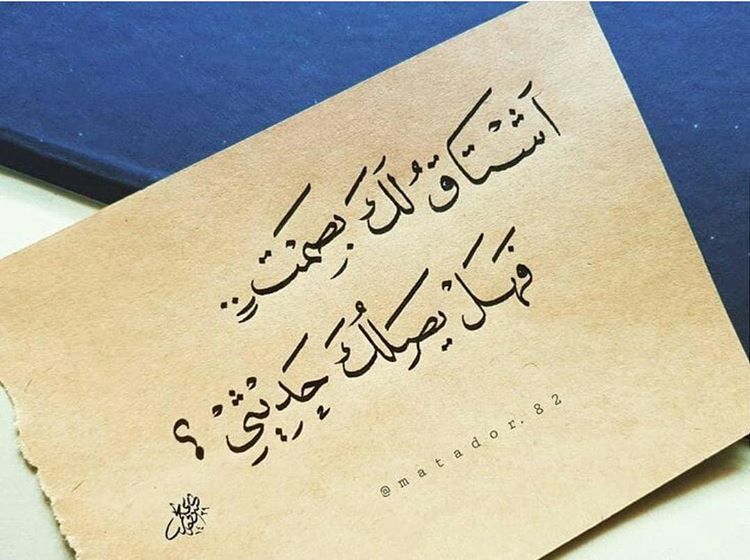 اَشْتَاقُ لَكَ بِصَمْتٍ..
فَهَلْ يَصِلُكَ حَدِيْثِيْ ؟
@matador.82